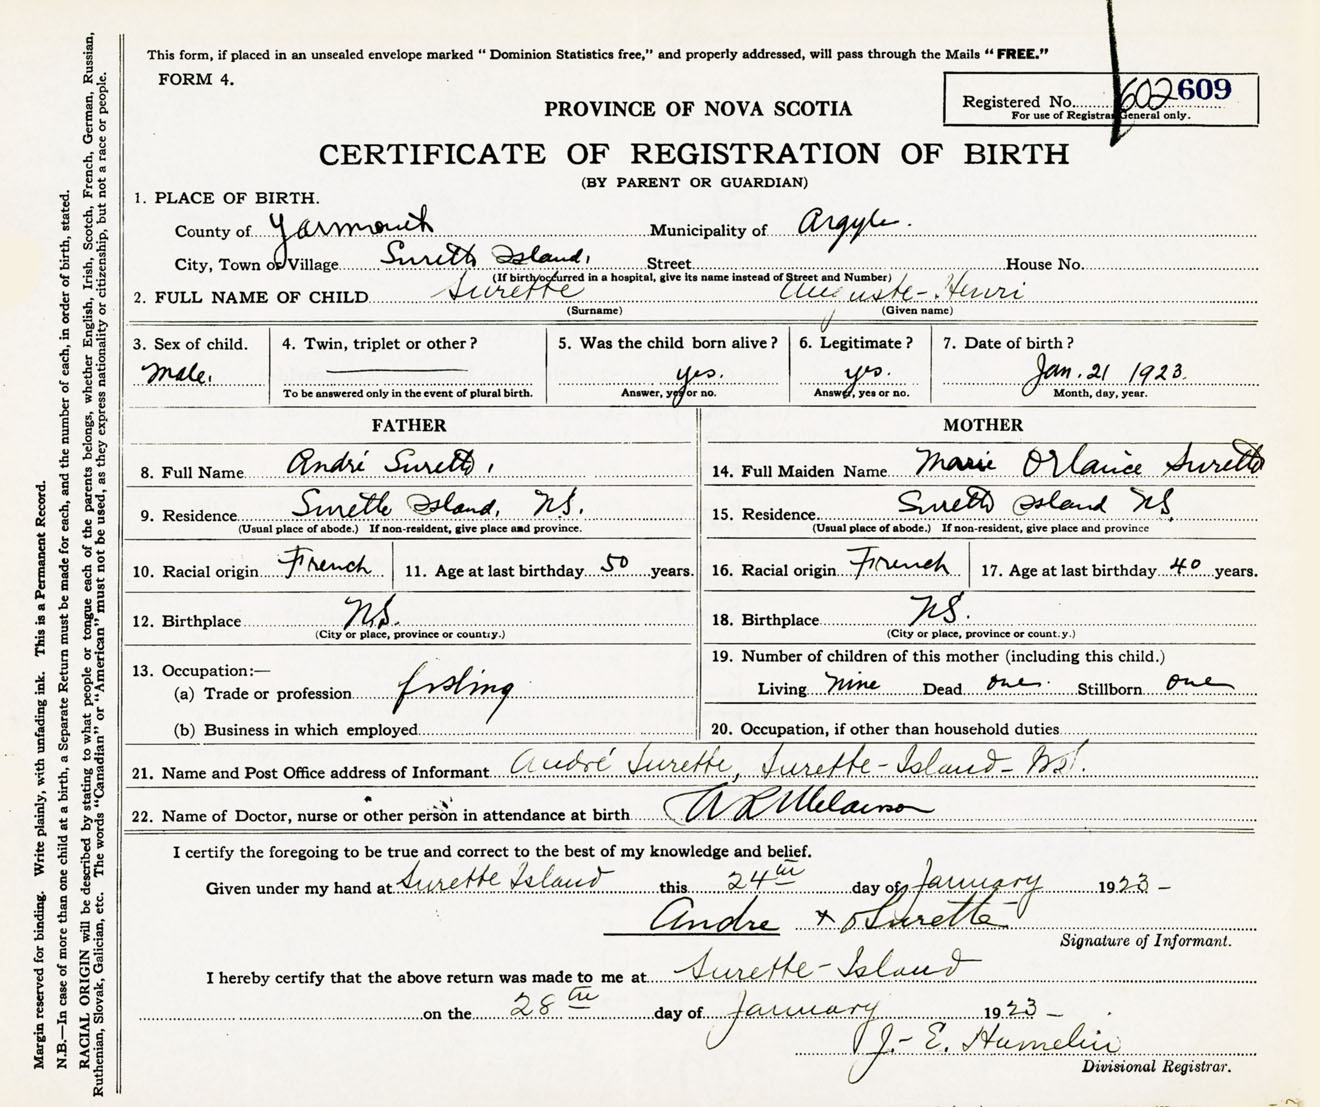 This form, if placed in an unsealed envelope marked “ Dominion Statistics free,” and properly addressed, will pass through the Mails “ FREE.”
FORM 4.
Registered No. 602 609
For use of Registrar General only.
PROVINCE OF NOVA SCOTIA
CERTIFICATE OF REGISTRATION OF BIRTH
(BY PARENT OR GUARDIAN)
1. PLACE OF BIRTH.
County of Yarmouth Municipality of Argyle.
City, Town or Village Surette Island, Street House No.
(If birth occurred in a hospital, give its name instead of Street and Number)
2. FULL NAME OF CHILD Surette Auguste-Henri
(Surname) (Given name)
3. Sex of child. 4. Twin, triplet or other ? 5. Was the child born alive ? 6. Legitimate ? 7. Date of birth ?
Male. yes. yes. Jan. 21 1923.
To be answered only in the event of plural birth. Answer, yes or no. Answer, yes or no. Month, day, year.
FATHER
8. Full Name André Surette,
9. Residence Surette Island, N.S.
(Usual place of abode.) If non-resident, give place and province.
10. Racial origin French 11. Age at last birthday 50 years.
12. Birthplace N.S.
(City or place, province or country.)
13. Occupation:—
(a) Trade or profession fishing
(b) Business in which employed
MOTHER
14. Full Maiden Name Marie Orlanice Surette
15. Residence Surette Island N.S.
(Usual place of abode.) If non-resident, give place and province
16. Racial origin French 17. Age at last birthday 40 years.
18. Birthplace N.S.
(City or place, province or country.)
19. Number of children of this mother (including this child.)
Living nine Dead one. Stillborn one
20. Occupation, if other than household duties
21. Name and Post Office address of Informant André Surette, Surette-Island- N.S.
22. Name of Doctor, nurse or other person in attendance at birth A R Melanson
I certify the foregoing to be true and correct to the best of my knowledge and belief.
Given under my hand at Surette Island this 24th day of January 1923 –
Andre x Surette
Signature of Informant.
I hereby certify that the above return was made to me at Surette-Island
on the 28th day of January 1923 –
J.- E. Hamelin
Divisional Registrar.
Margin reserved for binding. Write plainly, with unfading ink. This is a Permanent Record.
N.B.—In case of more than one child at a birth, a Separate Return must be made for each, and the number of each, in order of birth, stated.
RACIAL ORIGIN will be described by stating to what people or tongue each of the parents belongs, whether English, Irish, Scotch, French, German, Russian,
Ruthenian, Slovak, Galician, etc. The words “Canadian” or “American” must not be used, as they express nationality or citizenship, but not a race or people.